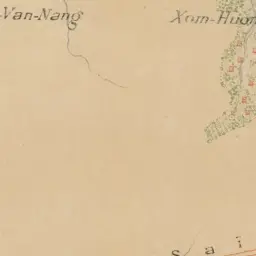 Van-Nang
Xom-Huon
Sai